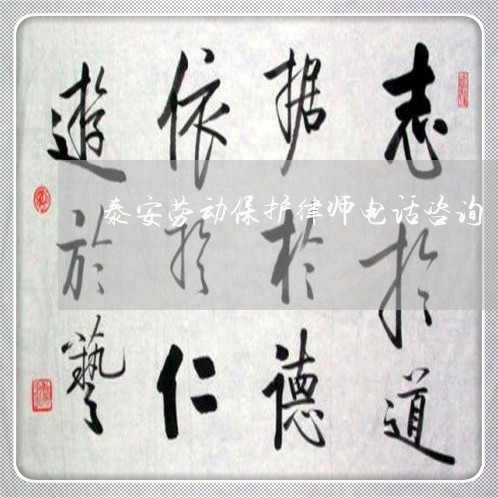 志於道
据於德
依於仁
遊於藝
泰安劳动保护律师电话咨询